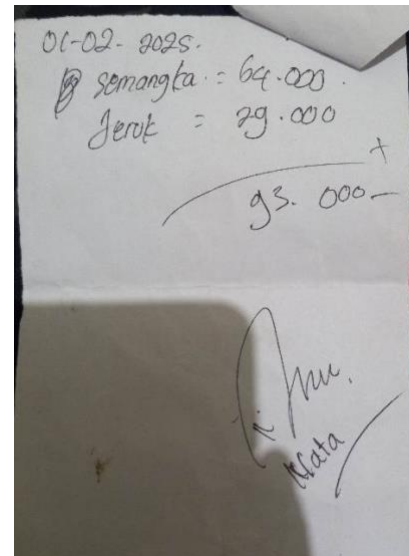 01-02-2025.
Semangka = 64.000.
Jeruk = 29.000
+
93.000-